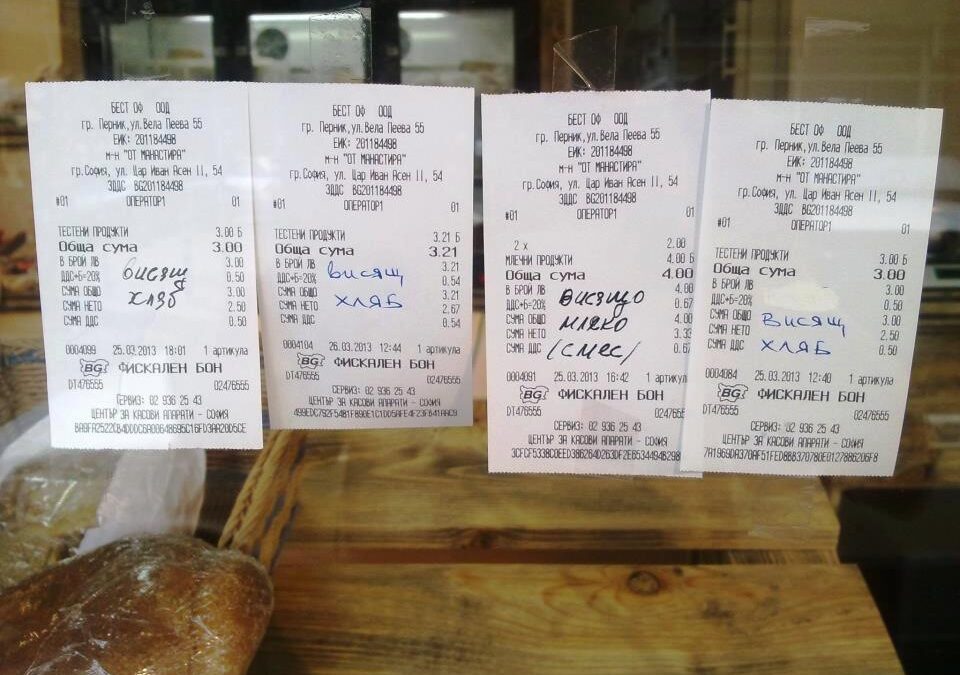 БЕСТ ОФ ООД
гр. Перник,ул.Вела Пеева 55
ЕИК: 201184498
м-н "ОТ МАНАСТИРА"
гр.София, ул. Цар Иван Асен II, 54
ЗДДС BG201184498
#01 ОПЕРАТОР1 01
ТЕСТЕНИ ПРОДУКТИ 3.00 Б
Обща сума 3.00
В БРОЙ ЛВ 3.00
ДДС+Б=20% 0.50
СУМА ОБЩО 3.00
СУМА НЕТО 2.50
СУМА ДДС 0.50
висящ
хляб
0004099 25.03.2013 18:01 1 артикула
BG ФИСКАЛЕН БОН
DT476555 02476555
СЕРВИЗ: 02 936 25 43
ЦЕНТЪР ЗА КАСОВИ АПАРАТИ - СОФИЯ
БЕСТ ОФ ООД
гр. Перник,ул.Вела Пеева 55
ЕИК: 201184498
м-н "ОТ МАНАСТИРА"
гр.София, ул. Цар Иван Асен II, 54
ЗДДС BG201184498
#01 ОПЕРАТОР1 01
ТЕСТЕНИ ПРОДУКТИ 3.21 Б
Обща сума 3.21
В БРОЙ ЛВ 3.21
ДДС+Б=20% 0.54
СУМА ОБЩО 3.21
СУМА НЕТО 2.67
СУМА ДДС 0.54
висящ
хляб
0004104 26.03.2013 12:44 1 артикула
BG ФИСКАЛЕН БОН
DT476555 02476555
СЕРВИЗ: 02 936 25 43
ЦЕНТЪР ЗА КАСОВИ АПАРАТИ - СОФИЯ
БЕСТ ОФ ООД
гр. Перник,ул.Вела Пеева 55
ЕИК: 201184498
м-н "ОТ МАНАСТИРА"
гр.София, ул. Цар Иван Асен II, 54
ЗДДС BG201184498
#01 ОПЕРАТОР1 01
2 x 2.00
МЛЕЧНИ ПРОДУКТИ 4.00 Б
Обща сума 4.00
В БРОЙ ЛВ 4.00
ДДС+Б=20% 0.67
СУМА ОБЩО 4.00
СУМА НЕТО 3.33
СУМА ДДС 0.67
висящо
мляко
/смес/
0004091 25.03.2013 16:42 1 артикул
BG ФИСКАЛЕН БОН
DT476555 024765
СЕРВИЗ: 02 936 25 43
ЦЕНТЪР ЗА КАСОВИ АПАРАТИ - СОФИЯ
БЕСТ ОФ ООД
гр. Перник,ул.Вела Пеева 55
ЕИК: 201184498
м-н "ОТ МАНАСТИРА"
гр.София, ул. Цар Иван Асен II, 54
ЗДДС BG201184498
#01 ОПЕРАТОР1 01
ТЕСТЕНИ ПРОДУКТИ 3.00 Б
Обща сума 3.00
В БРОЙ ЛВ 3.00
ДДС+Б=20% 0.50
СУМА ОБЩО 3.00
СУМА НЕТО 2.50
СУМА ДДС 0.50
висящ
хляб
0004084 25.03.2013 12:40 1 артикула
BG ФИСКАЛЕН БОН
DT476555 02476555
СЕРВИЗ: 02 936 25 43
ЦЕНТЪР ЗА КАСОВИ АПАРАТИ - СОФИЯ